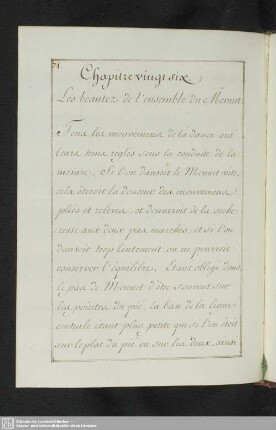 74.
Chapitre vingt six,
Les beautez de l'ensemble du Menuet.
Tous les mouvemens de la dance ont
leurs tems reglés sous la conduite de la
mesure. Si l'on dansoit le Menuet vite,
cela ôteroit la douceur des mouvemens
pliés et relevés, et donneroit de la seche-
resse aux deux pas marchés, et si l'on
dansoit trop lentement on ne pourroit
conserver l'équilibre. Etant obligé dans
le pas de Menuet d'être souvent sur
les pointes du pié, la base de la ligne
centrale etant plus petite que si l'on étoit
sur le plat du pié ou sur les deux, ainsi